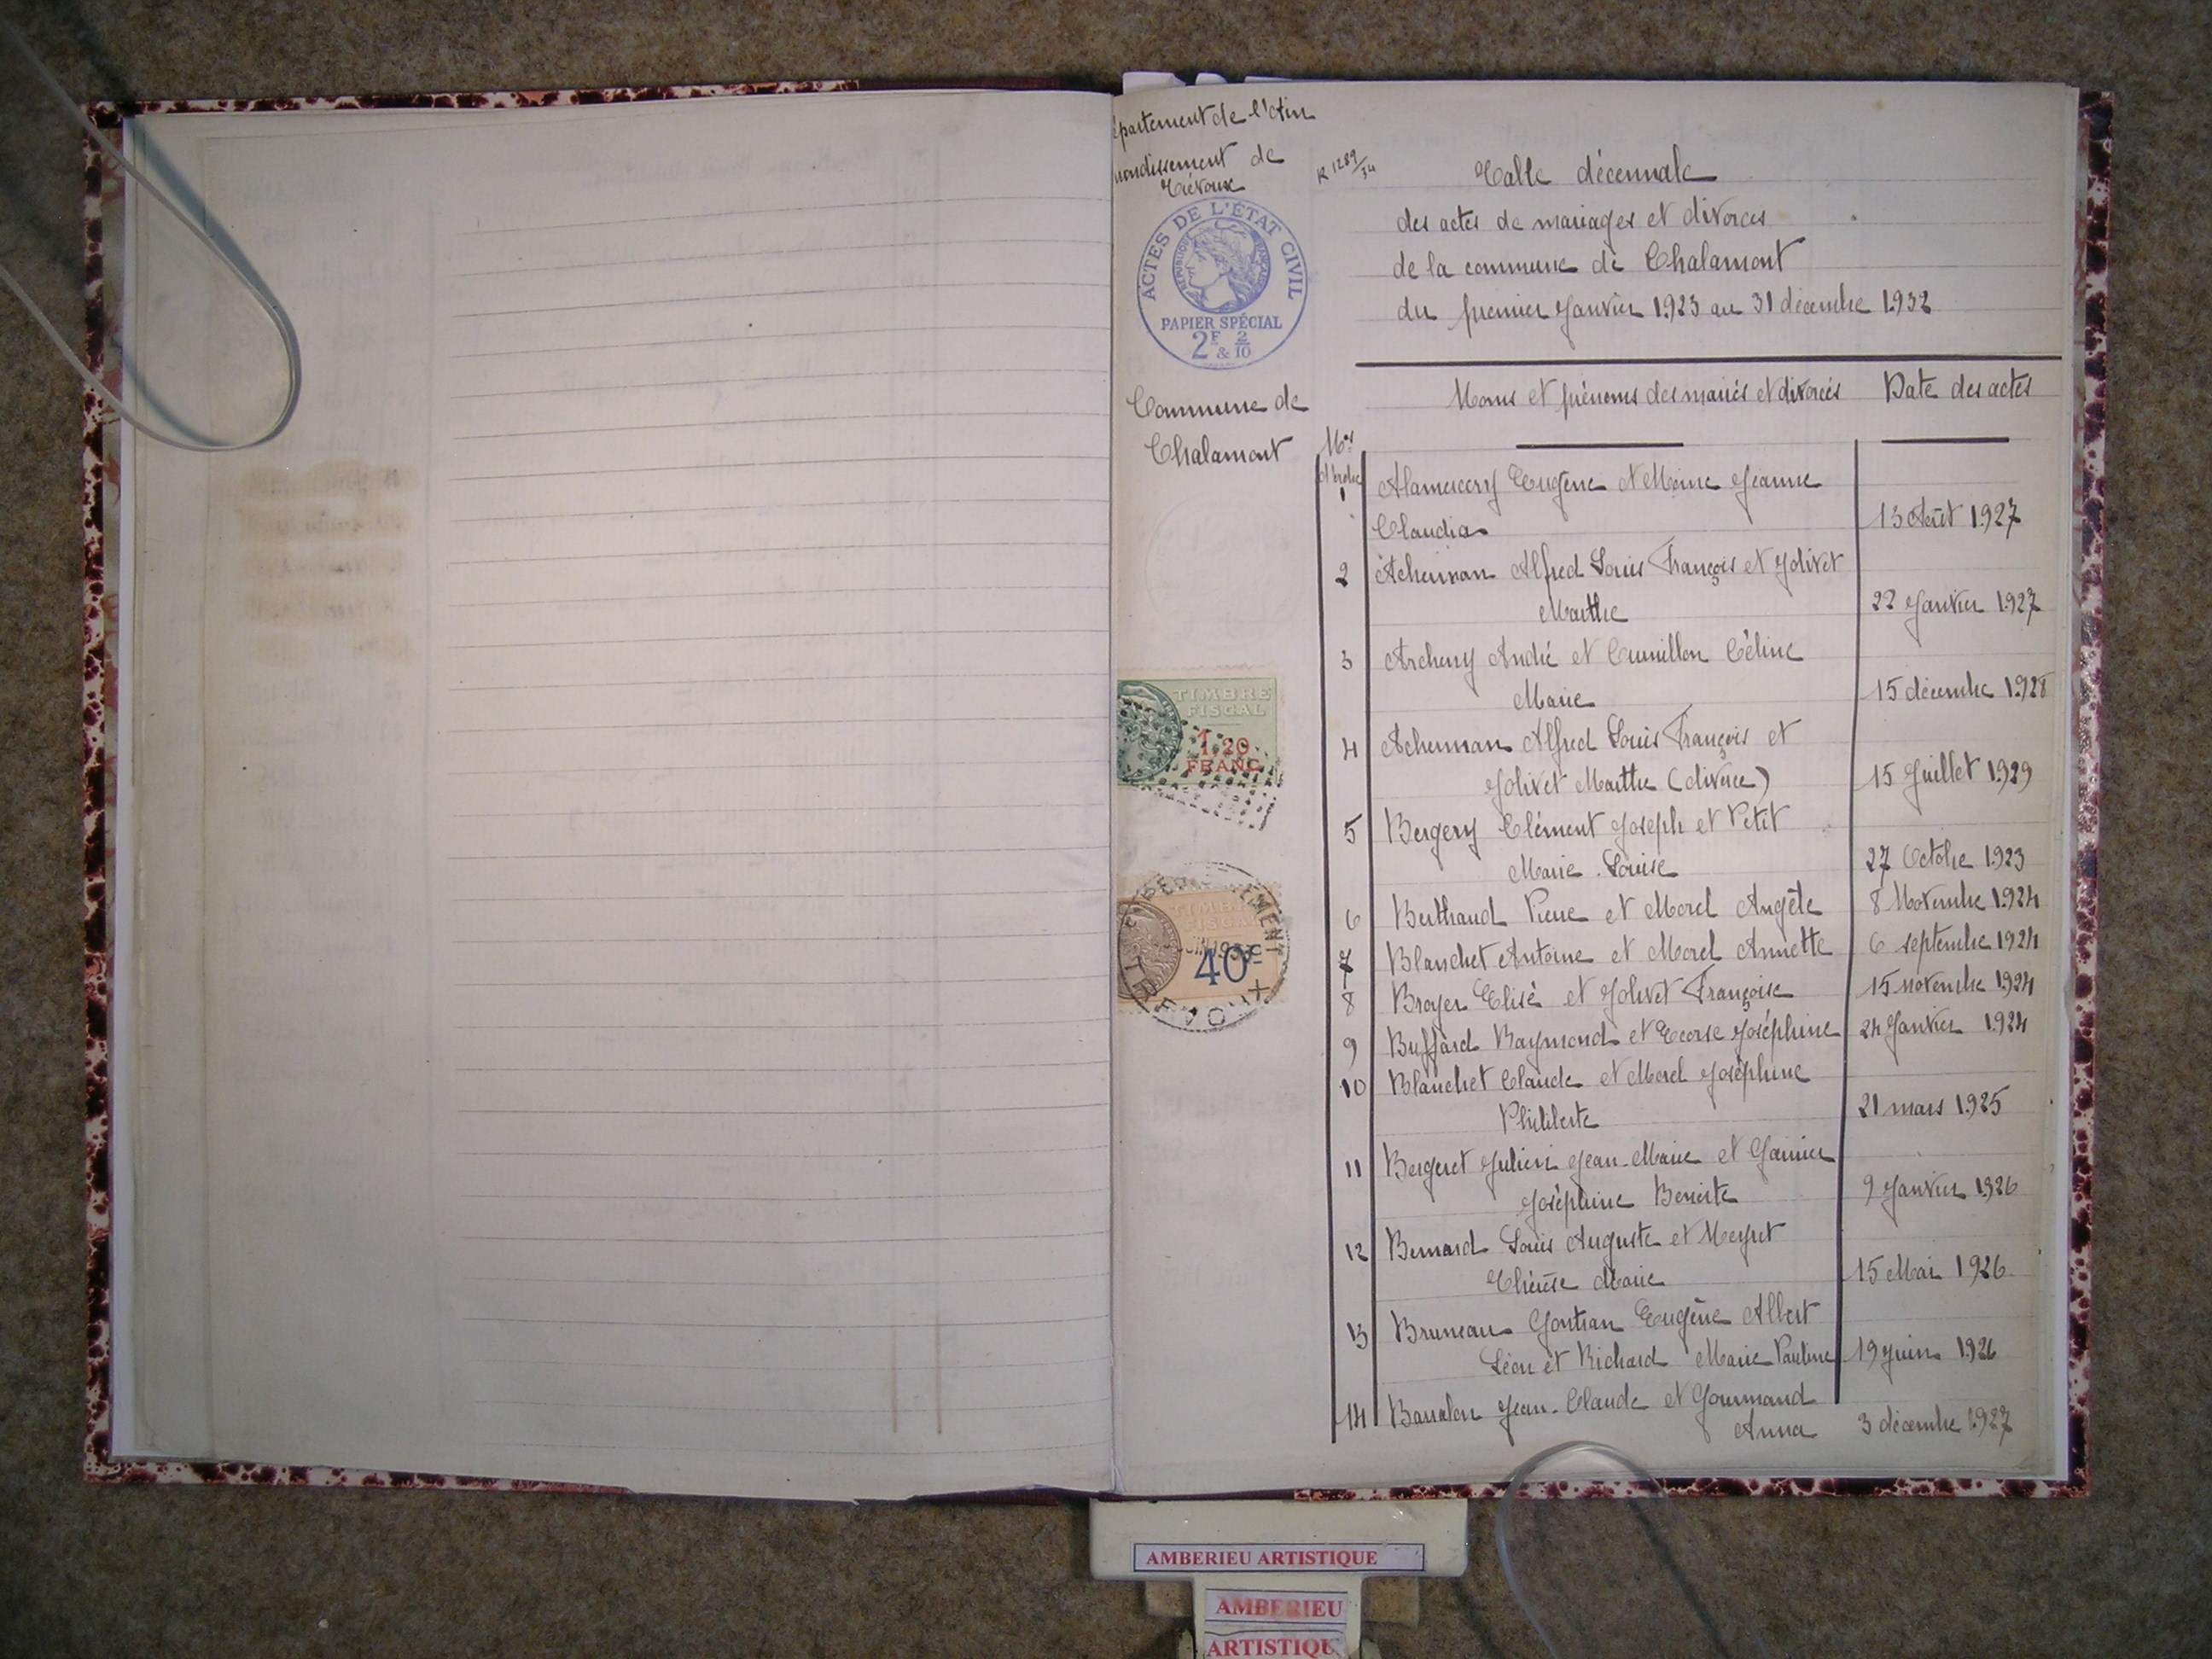 épartement de l'Ain
rrondissement de
Trévoux
R 1289/34
ACTES DE L'ÉTAT CIVIL
RÉPUBLIQUE FRANÇAISE
PAPIER SPÉCIAL
2F & 2/10
Commune de
Chalamont
TIMBRE
FISCAL
1,20
FRANC
TIMBRE
FISCAL
40
TREVOUX
Table décennale
des actes de mariages et divorces
de la commune de Chalamont
du premier Janvier 1923 au 31 décembre 1932
Nos d'ordre
Noms et prénoms des mariés et divorcés
Date des actes
1 Alamercery Eugène et Moine Jeanne
Claudia 13 Août 1927
2 Acherman Alfred Louis François et Jolivet
Marthe 22 Janvier 1927
3 Archeny André et Cumillon Céline
Marie 15 décembre 1928
4 Acherman Alfred Louis François et
Jolivet Marthe (divorce) 15 Juillet 1929
5 Bergery Clément Joseph et Petit
Marie-Louise 27 Octobre 1923
6 Berthaud Pierre et Morel Angèle 8 Novembre 1924
7 Blanchet Antoine et Morel Annette 6 septembre 1924
8 Broyer Elisé et Jolivet Françoise 15 novembre 1924
9 Buffard Raymond et Ecorse Joséphine 24 Janvier 1924
10 Blanchet Claude et Morel Joséphine
Philiberte 21 mars 1925
11 Bergeret Julien Jean-Marie et Garnier
Joséphine Benoite 9 Janvier 1926
12 Bernard Louis Auguste et Neyret
Thérèse Marie 15 Mai 1926
13 Bruneau Gontran Eugène Albert
Léon et Richard Marie Pauline 19 juin 1926
14 Barralon Jean-Claude et Gourmand
Anna 3 décembre 1927
AMBERIEU ARTISTIQUE
AMBERIEU
ARTISTIQU